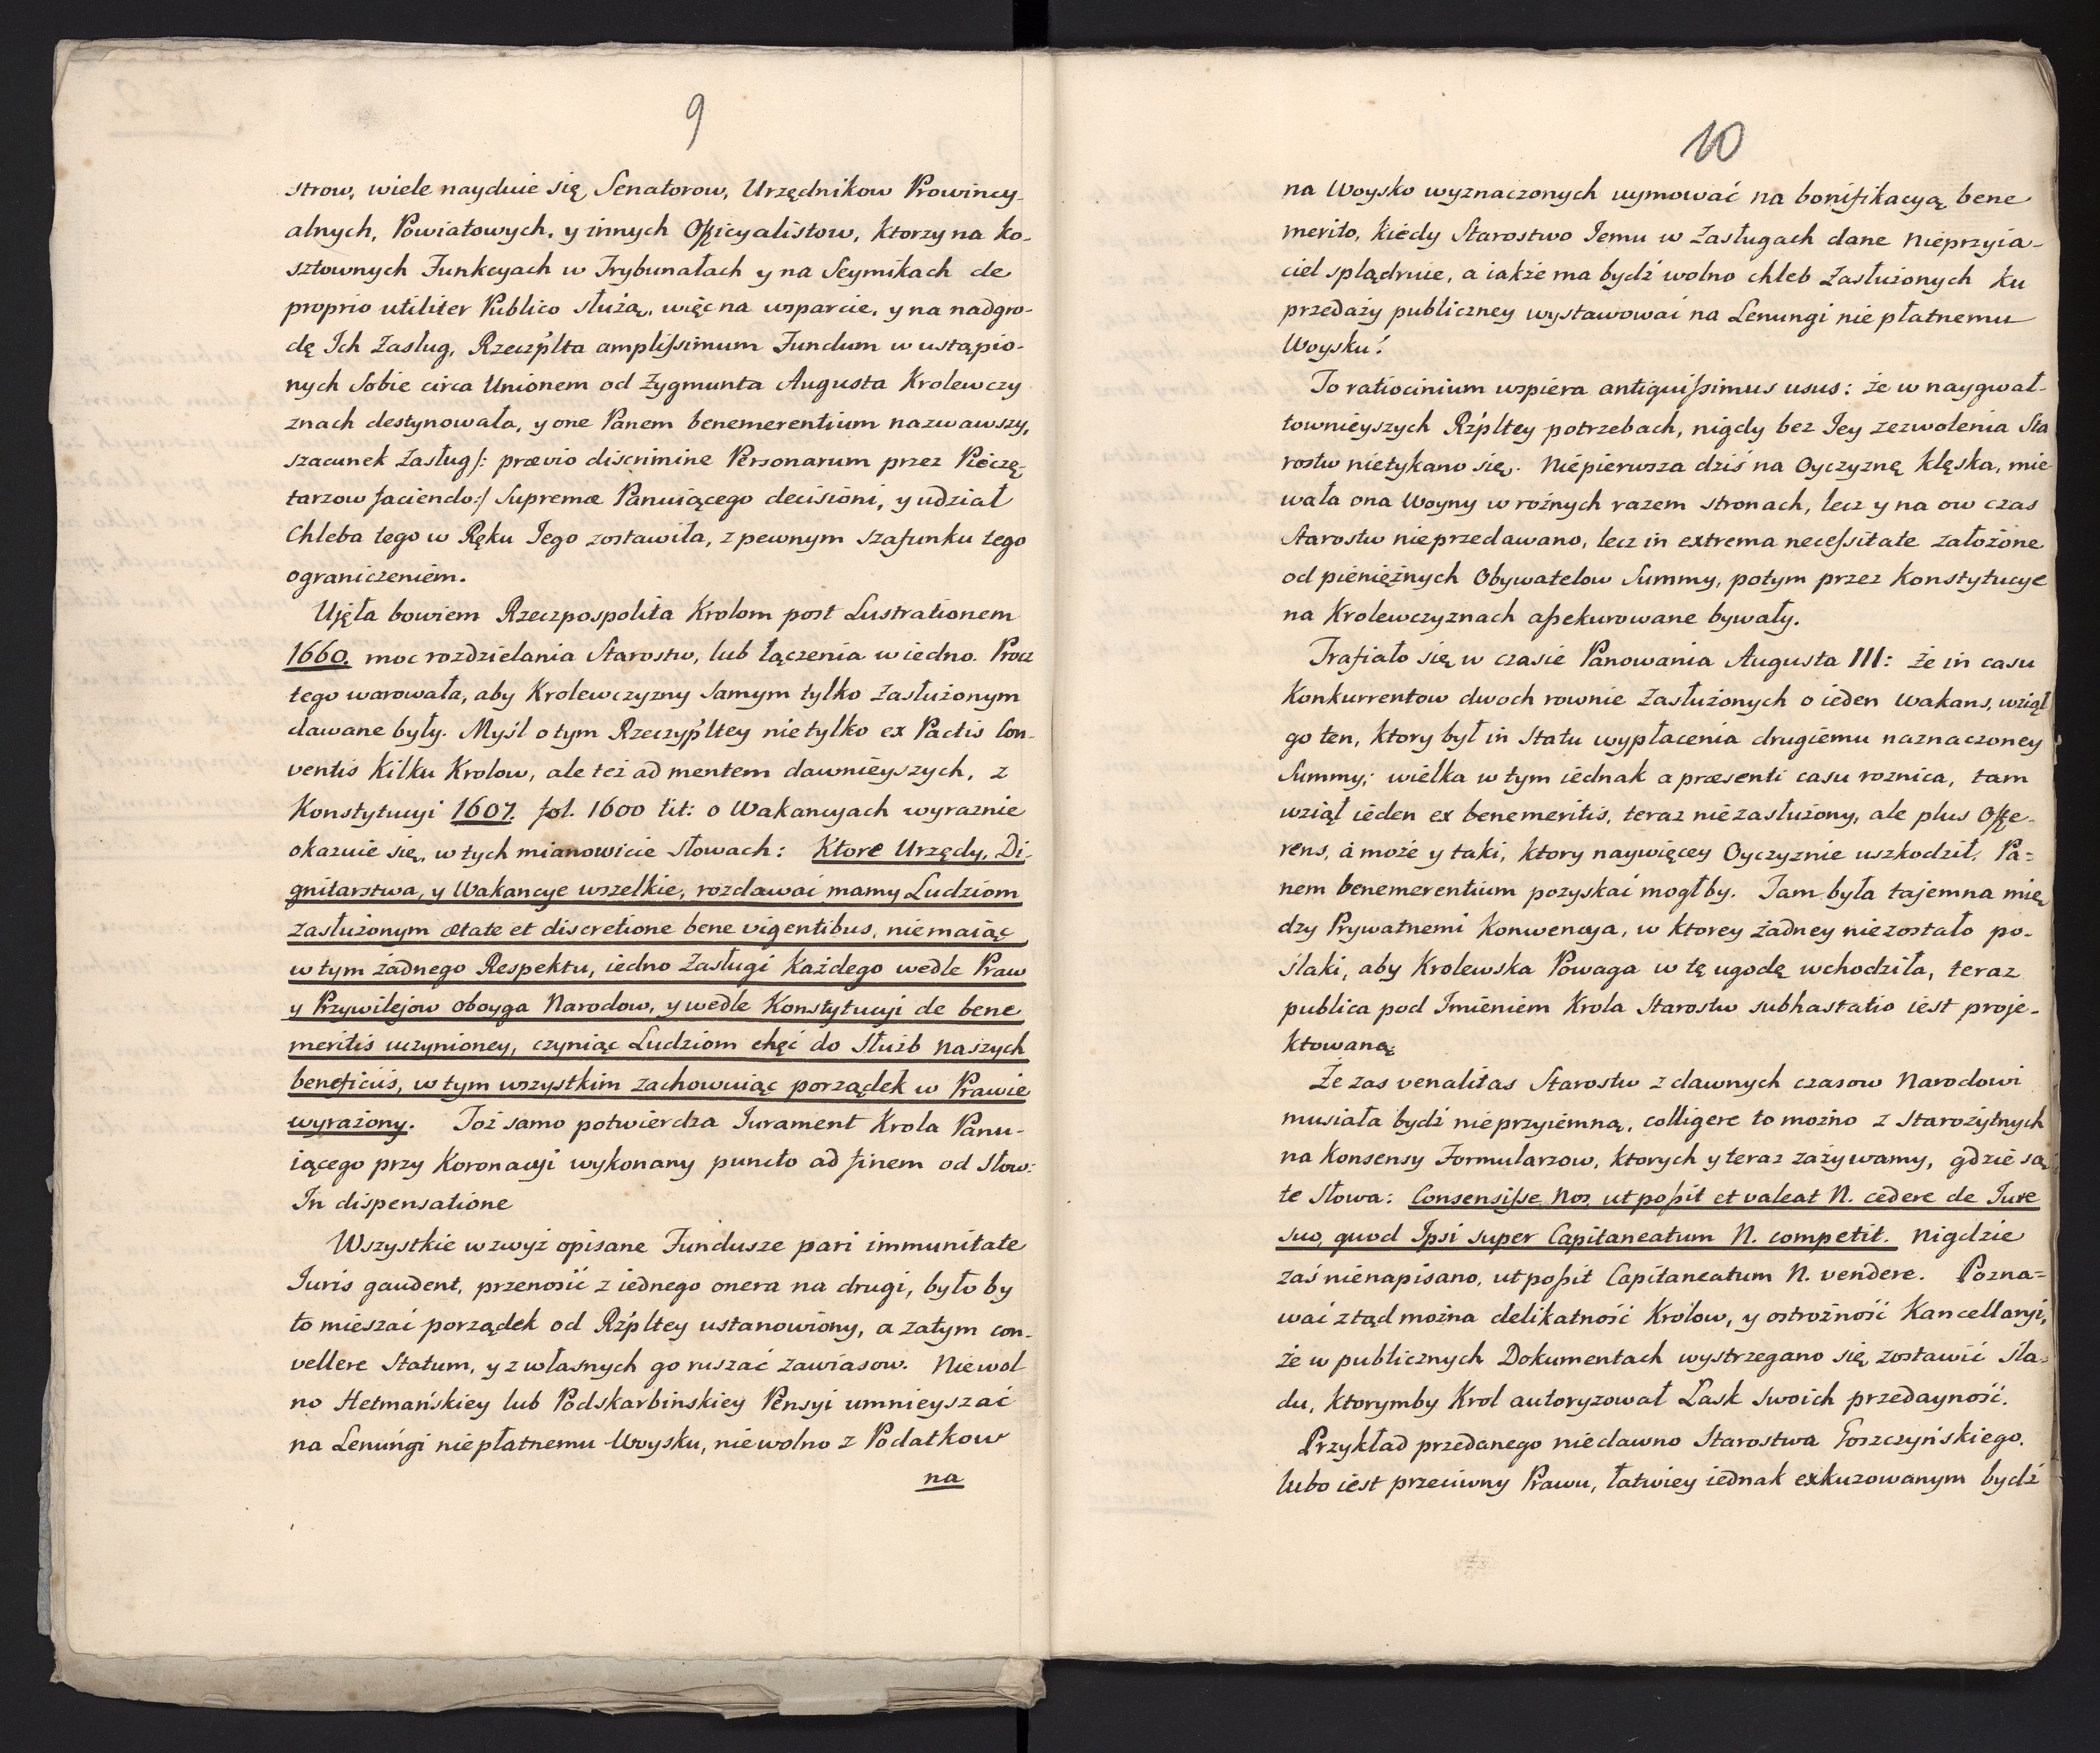 9
strow, wiele nayduie się Senatorow, Urzędnikow Prowincy-
alnych, Powiatowych, y innych Officyalistow, ktorzy na ko-
sztownych Funkcyach w Trybunałach y na Seymikach de
proprio utiliter Publico służą, więc na wsparcie, y na nadgro-
dę Ich Zasług, Rzeczplta amplissimum Fundum w ustąpio-
nych Sobie circa Unionem od Zygmunta Augusta Krolewczy
znach destynowała, y one Panem benemerentium nazwawszy,
szacunek Zasług /: prævio discrimine Personarum przez Pieczę-
tarzow faciendo :/ Supremæ Panuiącego decisioni, y udział
Chleba tego w Ręku Jego zostawiła, z pewnym szafunku tego
ograniczeniem.
Ujęła bowiem Rzeczpospolita Krolom post Lustrationem
1660. moc rozdzielania Starostw, lub łączenia w iedno. Procz
tego warowała, aby Krolewczyzny Samym tylko Zasłużonym
dawane były. Myśl o tym Rzeczypltey nie tylko ex Pactis Con-
ventis Kilku Krolow, ale też ad mentem dawnieyszych, z
Konstytucyi 1607. fol. 1600 tit: o Wakancyach wyraznie
okazuie się, w tych mianowicie Słowach: Ktore Urzędy, Di-
gnitarstwa, y Wakancye wszelkie, rozdawać mamy Ludziom
zasłużonym ætate et discretione bene vigentibus, niemaiąc
w tym żadnego Respektu, iedno Zasługi Każdego wedle Praw
y Przywilejow oboyga Narodow, y wedle Konstytucyi de bene
meritis uczynioney, czyniąc Ludziom chęć do Służb Naszych
beneficiis, w tym wszystkim zachowuiąc porządek w Prawie
wyrażony. Toż samo potwierdza Jurament Krola Panu-
iącego przy Koronacyi wykonany puncto ad finem od Słow:
In dispensatione
Wszystkie wzwyż opisane Fundusze pari immunitate
Juris gaudent, przenosić z iednego onera na drugi, było by
to mieszać porządek od Rzpltey ustanowiony, a zatym con-
vellere Statum, y z własnych go ruszać zawiasow. Niewol
no Hetmańskiey lub Podskarbinskiey Pensyi umnieyszać
na Lenungi niepłatnemu Woysku, niewolno z Podatkow
na
10
na Woysko wyznaczonych uymować na bonifikacyą bene
merito, kiedy Starostwo Jemu w Zasługach dane Nieprzyia-
ciel splądruie, a iakże ma bydź wolno chleb Zasłużonych ku
przedaży publiczney wystawować na Lenungi nie płatnemu
Woysku!
To ratiocinium wspiera antiquissimus usus: że w naygwał-
townieyszych Rzpltey potrzebach, nigdy bez Jey zezwolenia Sta
rostw nietykano się. Niepierwsza dziś na Oyczyznę klęska, mie
wała ona Woyny w rożnych razem stronach, lecz y na ow czas
Starostw nieprzedawano, lecz in extrema necessitate założone
od pieniężnych Obywatelow Summy, potym przez Konstytucye
na Krolewczyznach assekurowane bywały.
Trafiało się w czasie Panowania Augusta III: że in casu
Konkurrentow dwoch rownie Zasłużonych o ieden Wakans, wziął
go ten, ktory był in Statu wypłacenia drugiemu naznaczoney
Summy; wielka w tym iednak a præsenti casu roznica, tam
wziął ieden ex benemeritis, teraz niezasłużony, ale plus Offe-
rens, a może y taki, ktory naywięcey Oyczyznie uszkodził, Pa=
nem benemerentium pozyskać mogłby. Tam była tajemna mię
dzy Prywatnemi Konwencya, w ktorey żadney niezostało po-
szlaki, aby Krolewska Powaga w tę ugodę wchodziła, teraz
publica pod Imieniem Krola Starostw subhastatio iest proje-
ktowaną.
Że zas venalitas Starostw z dawnych czasow Narodowi
musiała bydź nieprzyiemną, colligere to możno z Starożytnych
na Konsensy Formularzow, ktorych y teraz zażywamy, gdzie są
te Słowa: Consensisse Nos, ut possit et valeat N. cedere de Jure
suo, quod Ipsi super Capitaneatum N. competit. Nigdzie
zaś nienapisano, ut possit Capitaneatum N. vendere. Pozna=
wać ztąd można delikatność Krolow, y ostrożność Kancellaryi,
że w publicznych Dokumentach wystrzegano się zostawić śla-
du, ktorymby Krol autoryzował Łask Swoich przedayność.
Przykład przedanego niedawno Starostwa Goszczyńskiego,
lubo iest przeciwny Prawu, łatwiey iednak exkuzowanym bydź